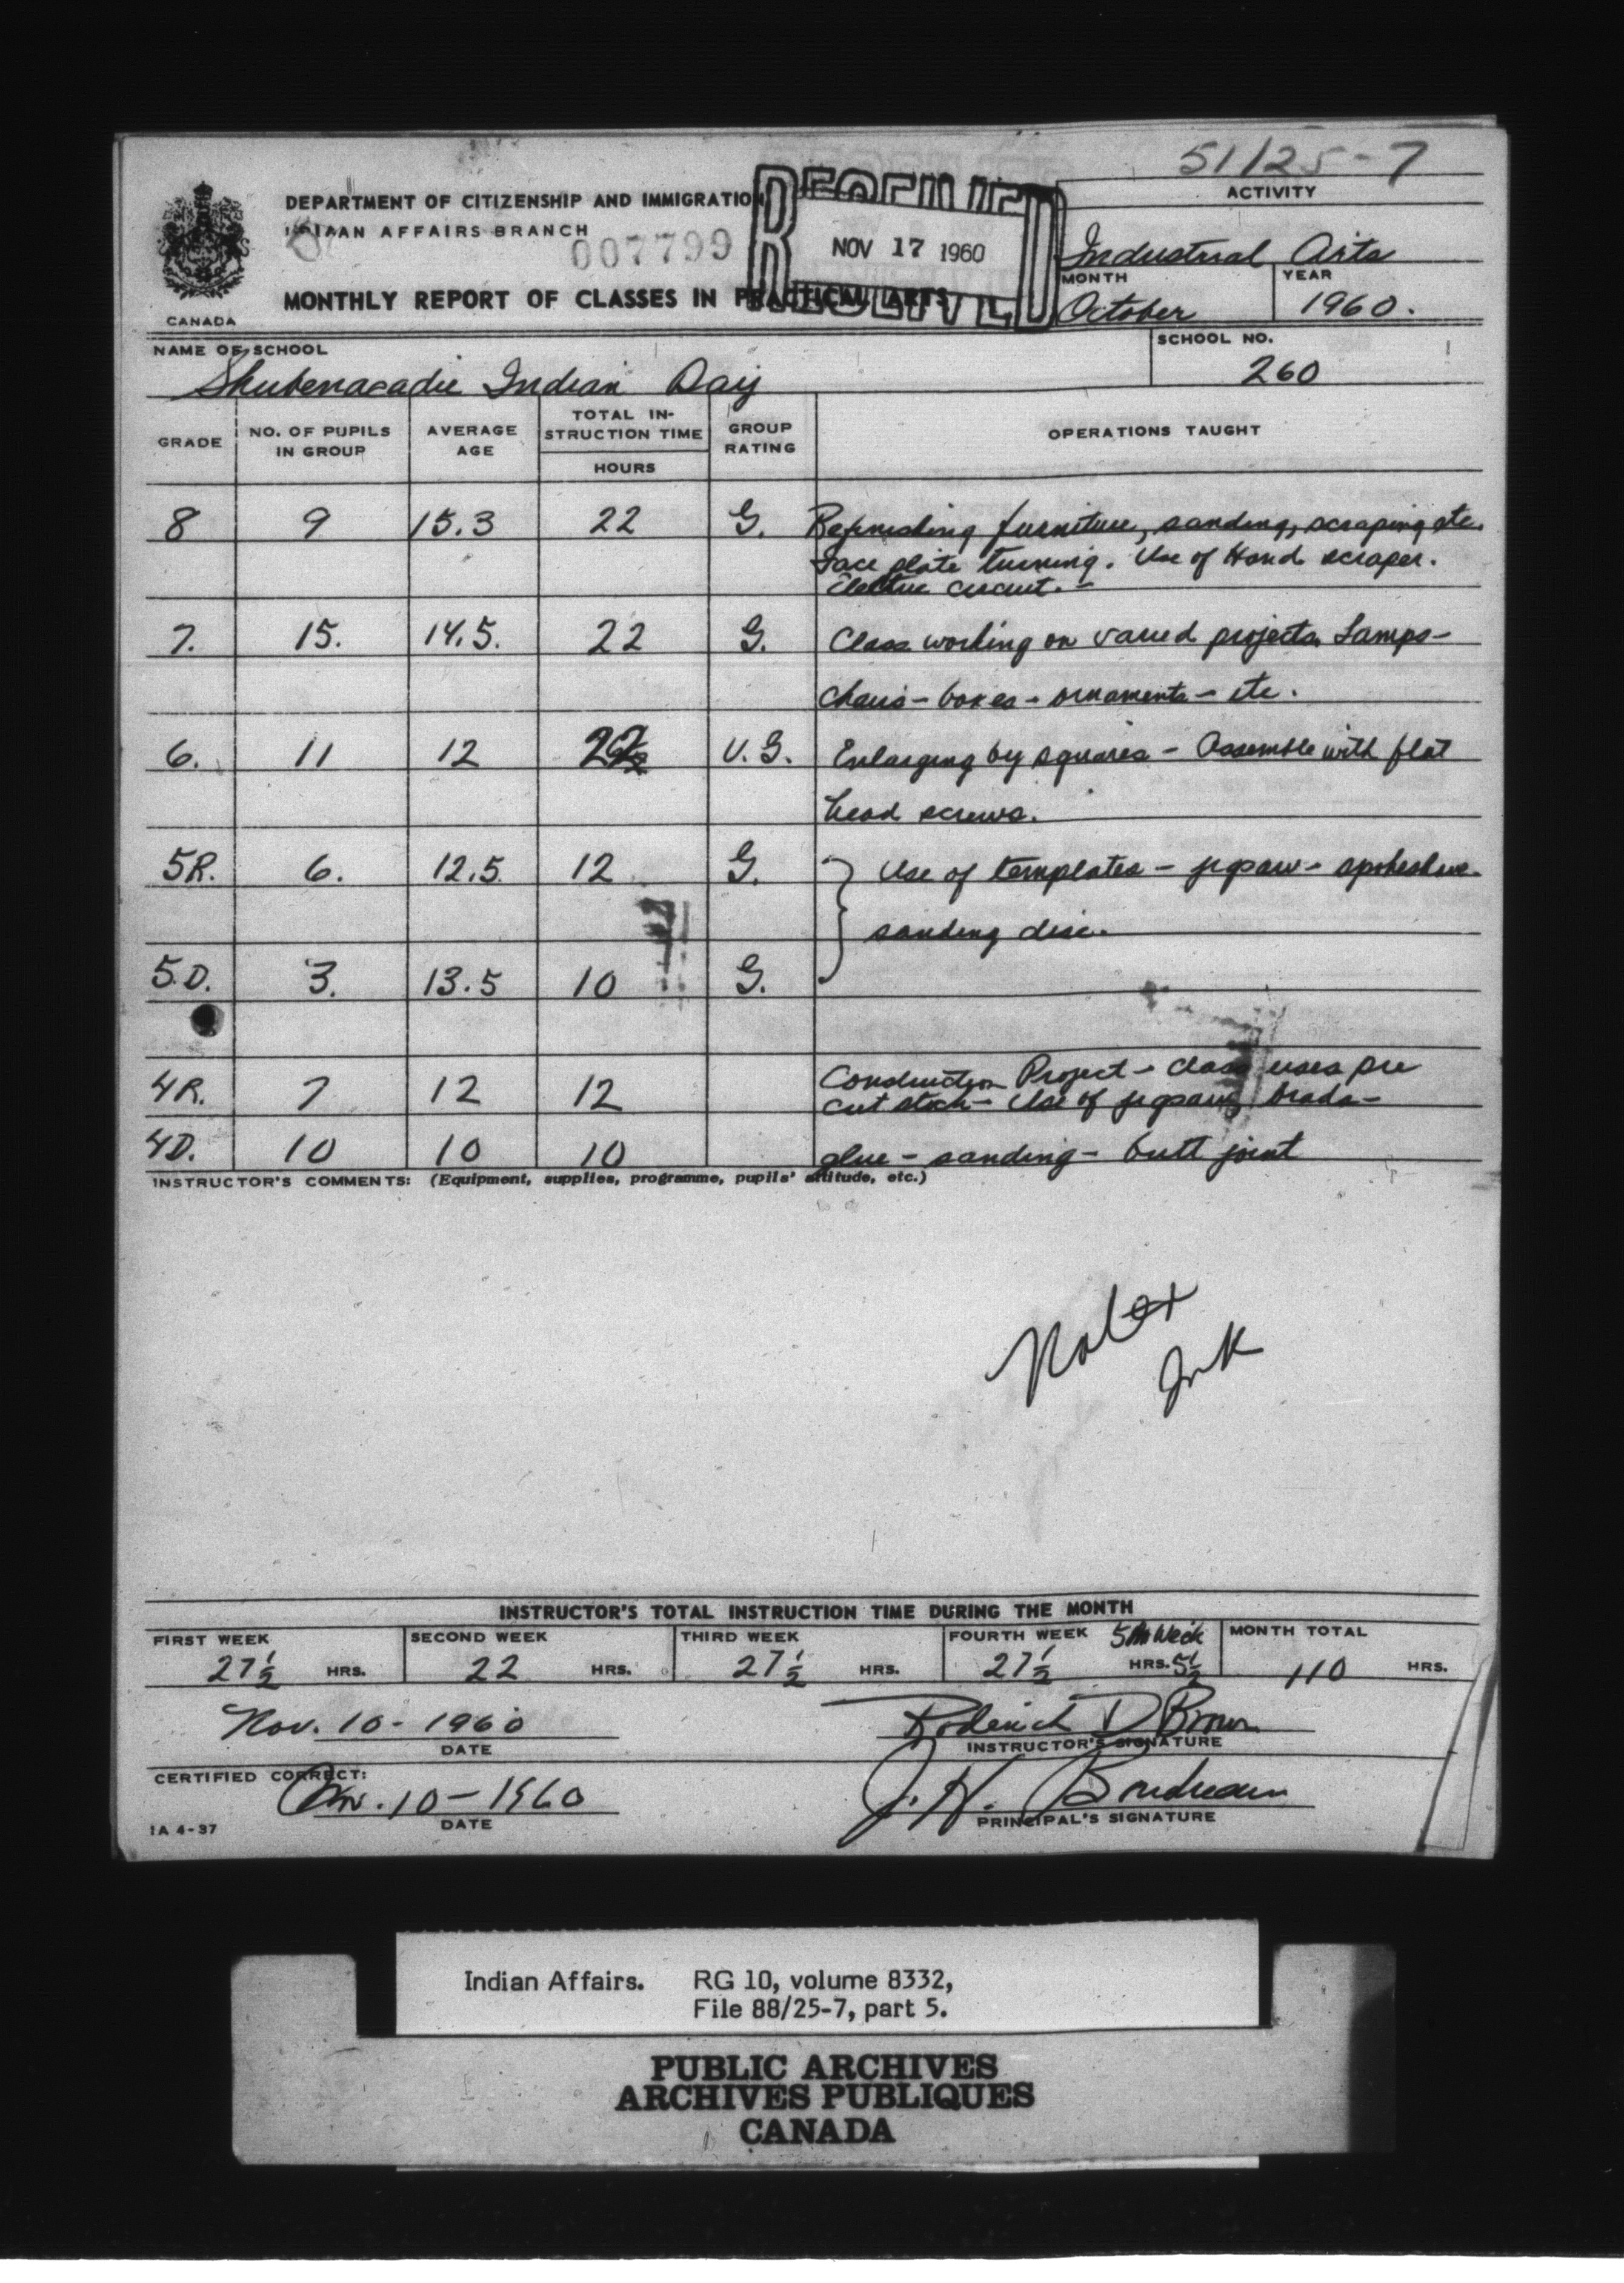 51/25-7
DEPARTMENT OF CITIZENSHIP AND IMMIGRATION
INDIAN AFFAIRS BRANCH
007799
RECEIVED
NOV 17 1960
ACTIVITY
Industrial Arts
MONTH YEAR
October 1960.
MONTHLY REPORT OF CLASSES IN PRACTICAL ARTS
CANADA
NAME OF SCHOOL SCHOOL NO.
Shubenacadie Indian Day 260
GRADE NO. OF PUPILS IN GROUP AVERAGE AGE TOTAL INSTRUCTION TIME HOURS GROUP RATING OPERATIONS TAUGHT
8 9 15.3 22 G. Refinishing furniture, sanding, scraping etc.
Face plate turning. Use of Hand scraper.
Electric circuit. -
7. 15. 14.5. 22 G. Class working on varied projects Lamps-
chairs - boxes - ornaments - etc.
6. 11 12 22 V.G. Enlarging by squares - Assemble with flat
head screws.
5R. 6. 12.5. 12 G. Use of templates - jigsaw - spokeshave.
sanding disc.
5.D. 3. 13.5 10 G.
4R. 7 12 12 Construction Project - class uses pre
cut stock - Use of jigsaw, brads -
4D. 10 10 10 glue - sanding - butt joint
INSTRUCTOR'S COMMENTS: (Equipment, supplies, programme, pupils' attitude, etc.)
INSTRUCTOR'S TOTAL INSTRUCTION TIME DURING THE MONTH
FIRST WEEK SECOND WEEK THIRD WEEK FOURTH WEEK 5th Week MONTH TOTAL
27 1/2 HRS. 22 HRS. 27 1/2 HRS. 27 1/2 HRS. 5 1/2 110 HRS.
Nov. 10 - 1960 Roderick D Brown
DATE INSTRUCTOR'S SIGNATURE
CERTIFIED CORRECT:
Nov. 10 - 1960 J. H. Boudreau
DATE PRINCIPAL'S SIGNATURE
IA 4-37
Indian Affairs. RG 10, volume 8332,
File 88/25-7, part 5.
PUBLIC ARCHIVES
ARCHIVES PUBLIQUES
CANADA